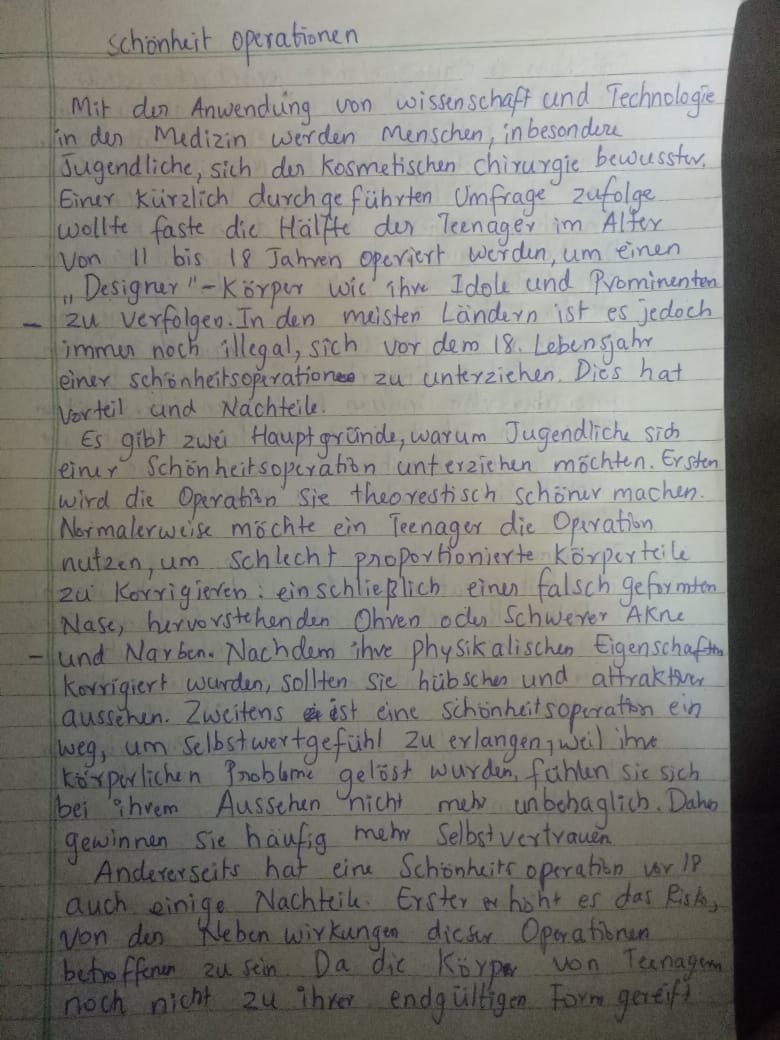 schönheit operationen
Mit der Anwendung von wissenschaft und Technologie
in der Medizin werden Menschen, inbesondere
Jugendliche, sich der kosmetischen chirurgie bewusster.
Einer kürzlich durchgeführten Umfrage zufolge
wollte faste die Hälfte der Teenager im Alter
von 11 bis 18 Jahren operiert werden, um einen
„Designer"-Körper wie ihre Idole und Prominenten
- zu verfolgen. In den meisten Ländern ist es jedoch
immer noch illegal, sich vor dem 18. Lebensjahr
einer schönheitsoperation zu unterziehen. Dies hat
Vorteil und Nachteile.
Es gibt zwei Hauptgründe, warum Jugendliche sich
einer Schönheitsoperation unterziehen möchten. Ersten
wird die Operation sie theorestisch schöner machen.
Normalerweise möchte ein Teenager die Operation
nutzen, um schlecht proportionierte Körperteile
zu korrigieren: einschließlich einer falsch geformten
Nase, hervorstehenden Ohren oder Schwerer Akne
- und Narben. Nachdem ihre physikalischen Eigenschaften
korrigiert wurden, sollten sie hübscher und attraktiver
aussehen. Zweitens ist eine schönheitsoperation ein
weg, um selbstwertgefühl zu erlangen, weil ihre
körperlichen Probleme gelöst wurden, fühlen sie sich
bei ihrem Aussehen nicht mehr unbehaglich. Daher
gewinnen sie häufig mehr Selbstvertrauen
Andererseits hat eine Schönheitsoperation vor 18
auch einige Nachteile. Erster erhöht es das Risko,
von den Nebenwirkungen dieser Operationen
betroffenen zu sein. Da die Körper von Teenagern
noch nicht zu ihrer endgültigen Form gereift